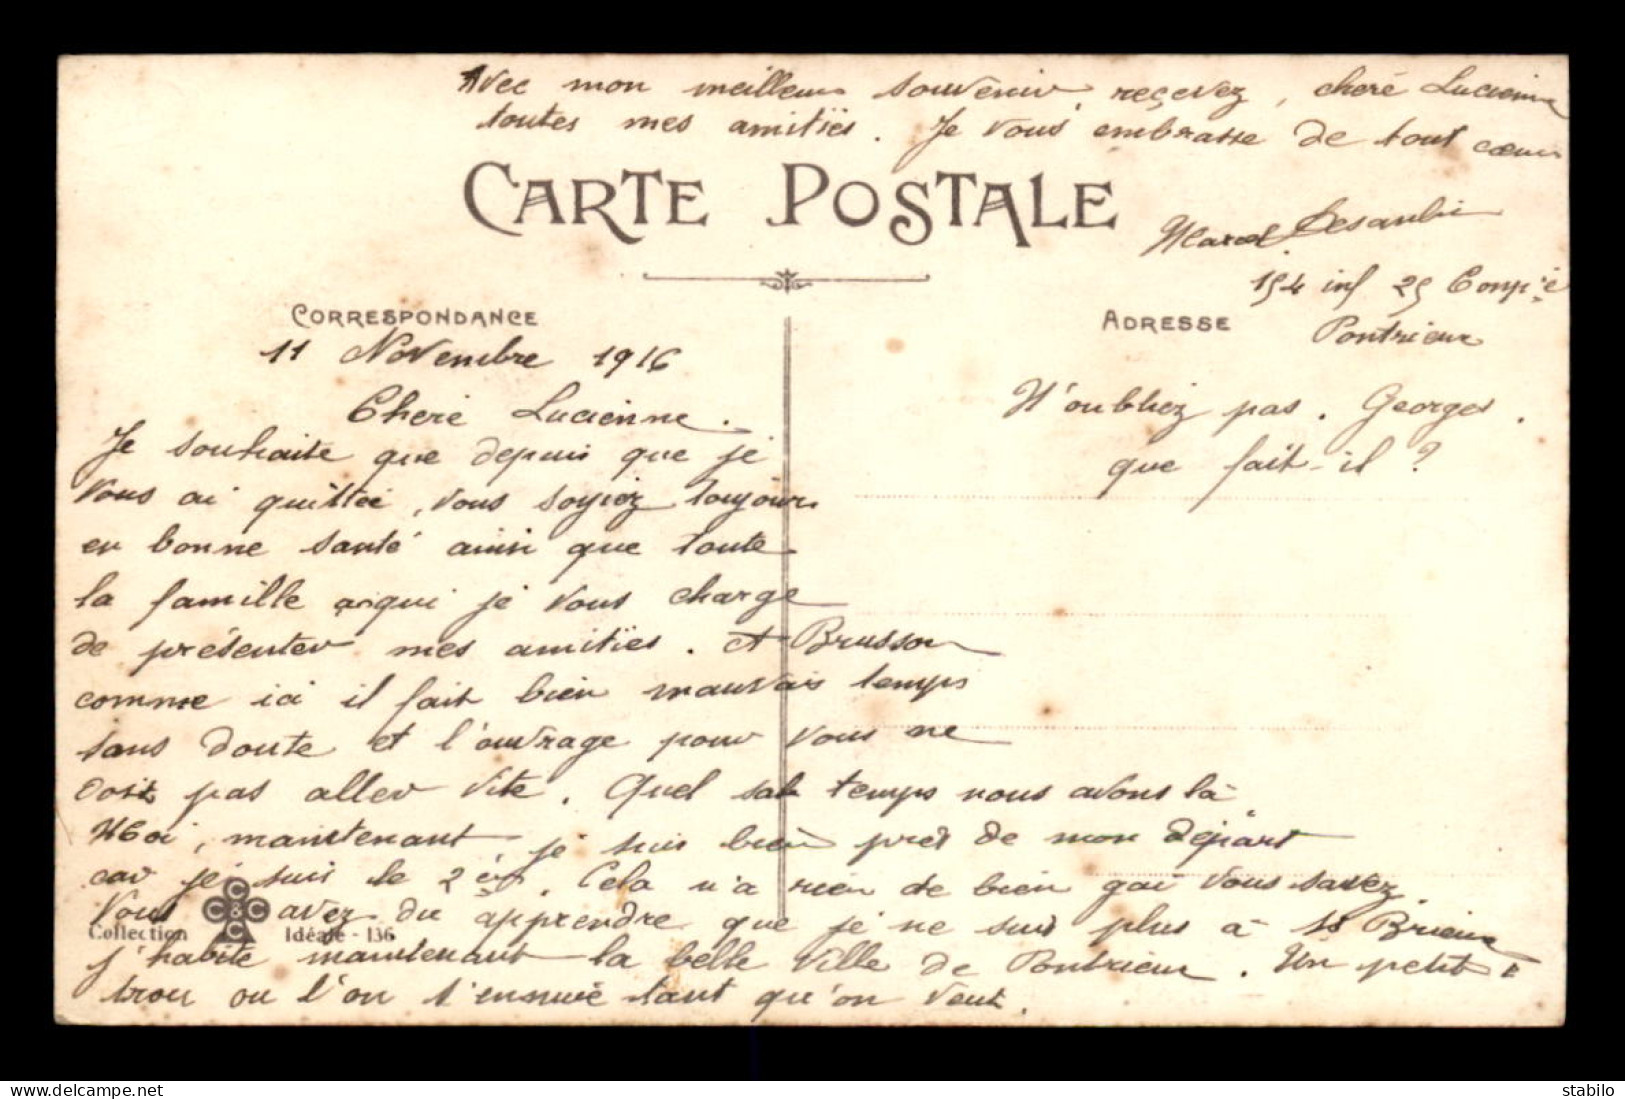 CARTE POSTALE
CORRESPONDANCE
11 Novembre 1916
Cheré Lucienne.
Je souhaite que depuis que je
vous ai quittéé, vous soyiez toujours
en bonne santé ainsi que toute
la famille aqui je vous charge
de présenter mes amitiés. A Brusson
comme ici il fait bien mauvais temps
sans doute et l'ouvrage pour vous ne
doit pas aller vite. Quel sale temps nous avons là
Moi, maintenant je suis bien près de mon départ
car je suis le 2èm. Cela n'a rien de bien gai vous savez
Vous avez du apprendre que je ne suis plus à St Brieuc
j'habite maintenant la belle ville de Pontrieux. Un petit
trou ou l'on s'ennuie tant qu'on veut.
Avec mon meilleur souvenir, reçevez, cheré Lucienne
toutes mes amitiés. Je vous embrasse de tout coeur
Marcel
154 inf 25 Compie
Pontrieux
ADRESSE
N'oubliez pas. Georges.
que fait-il?
C C & C C
Collection Idéale - 136
stabilo